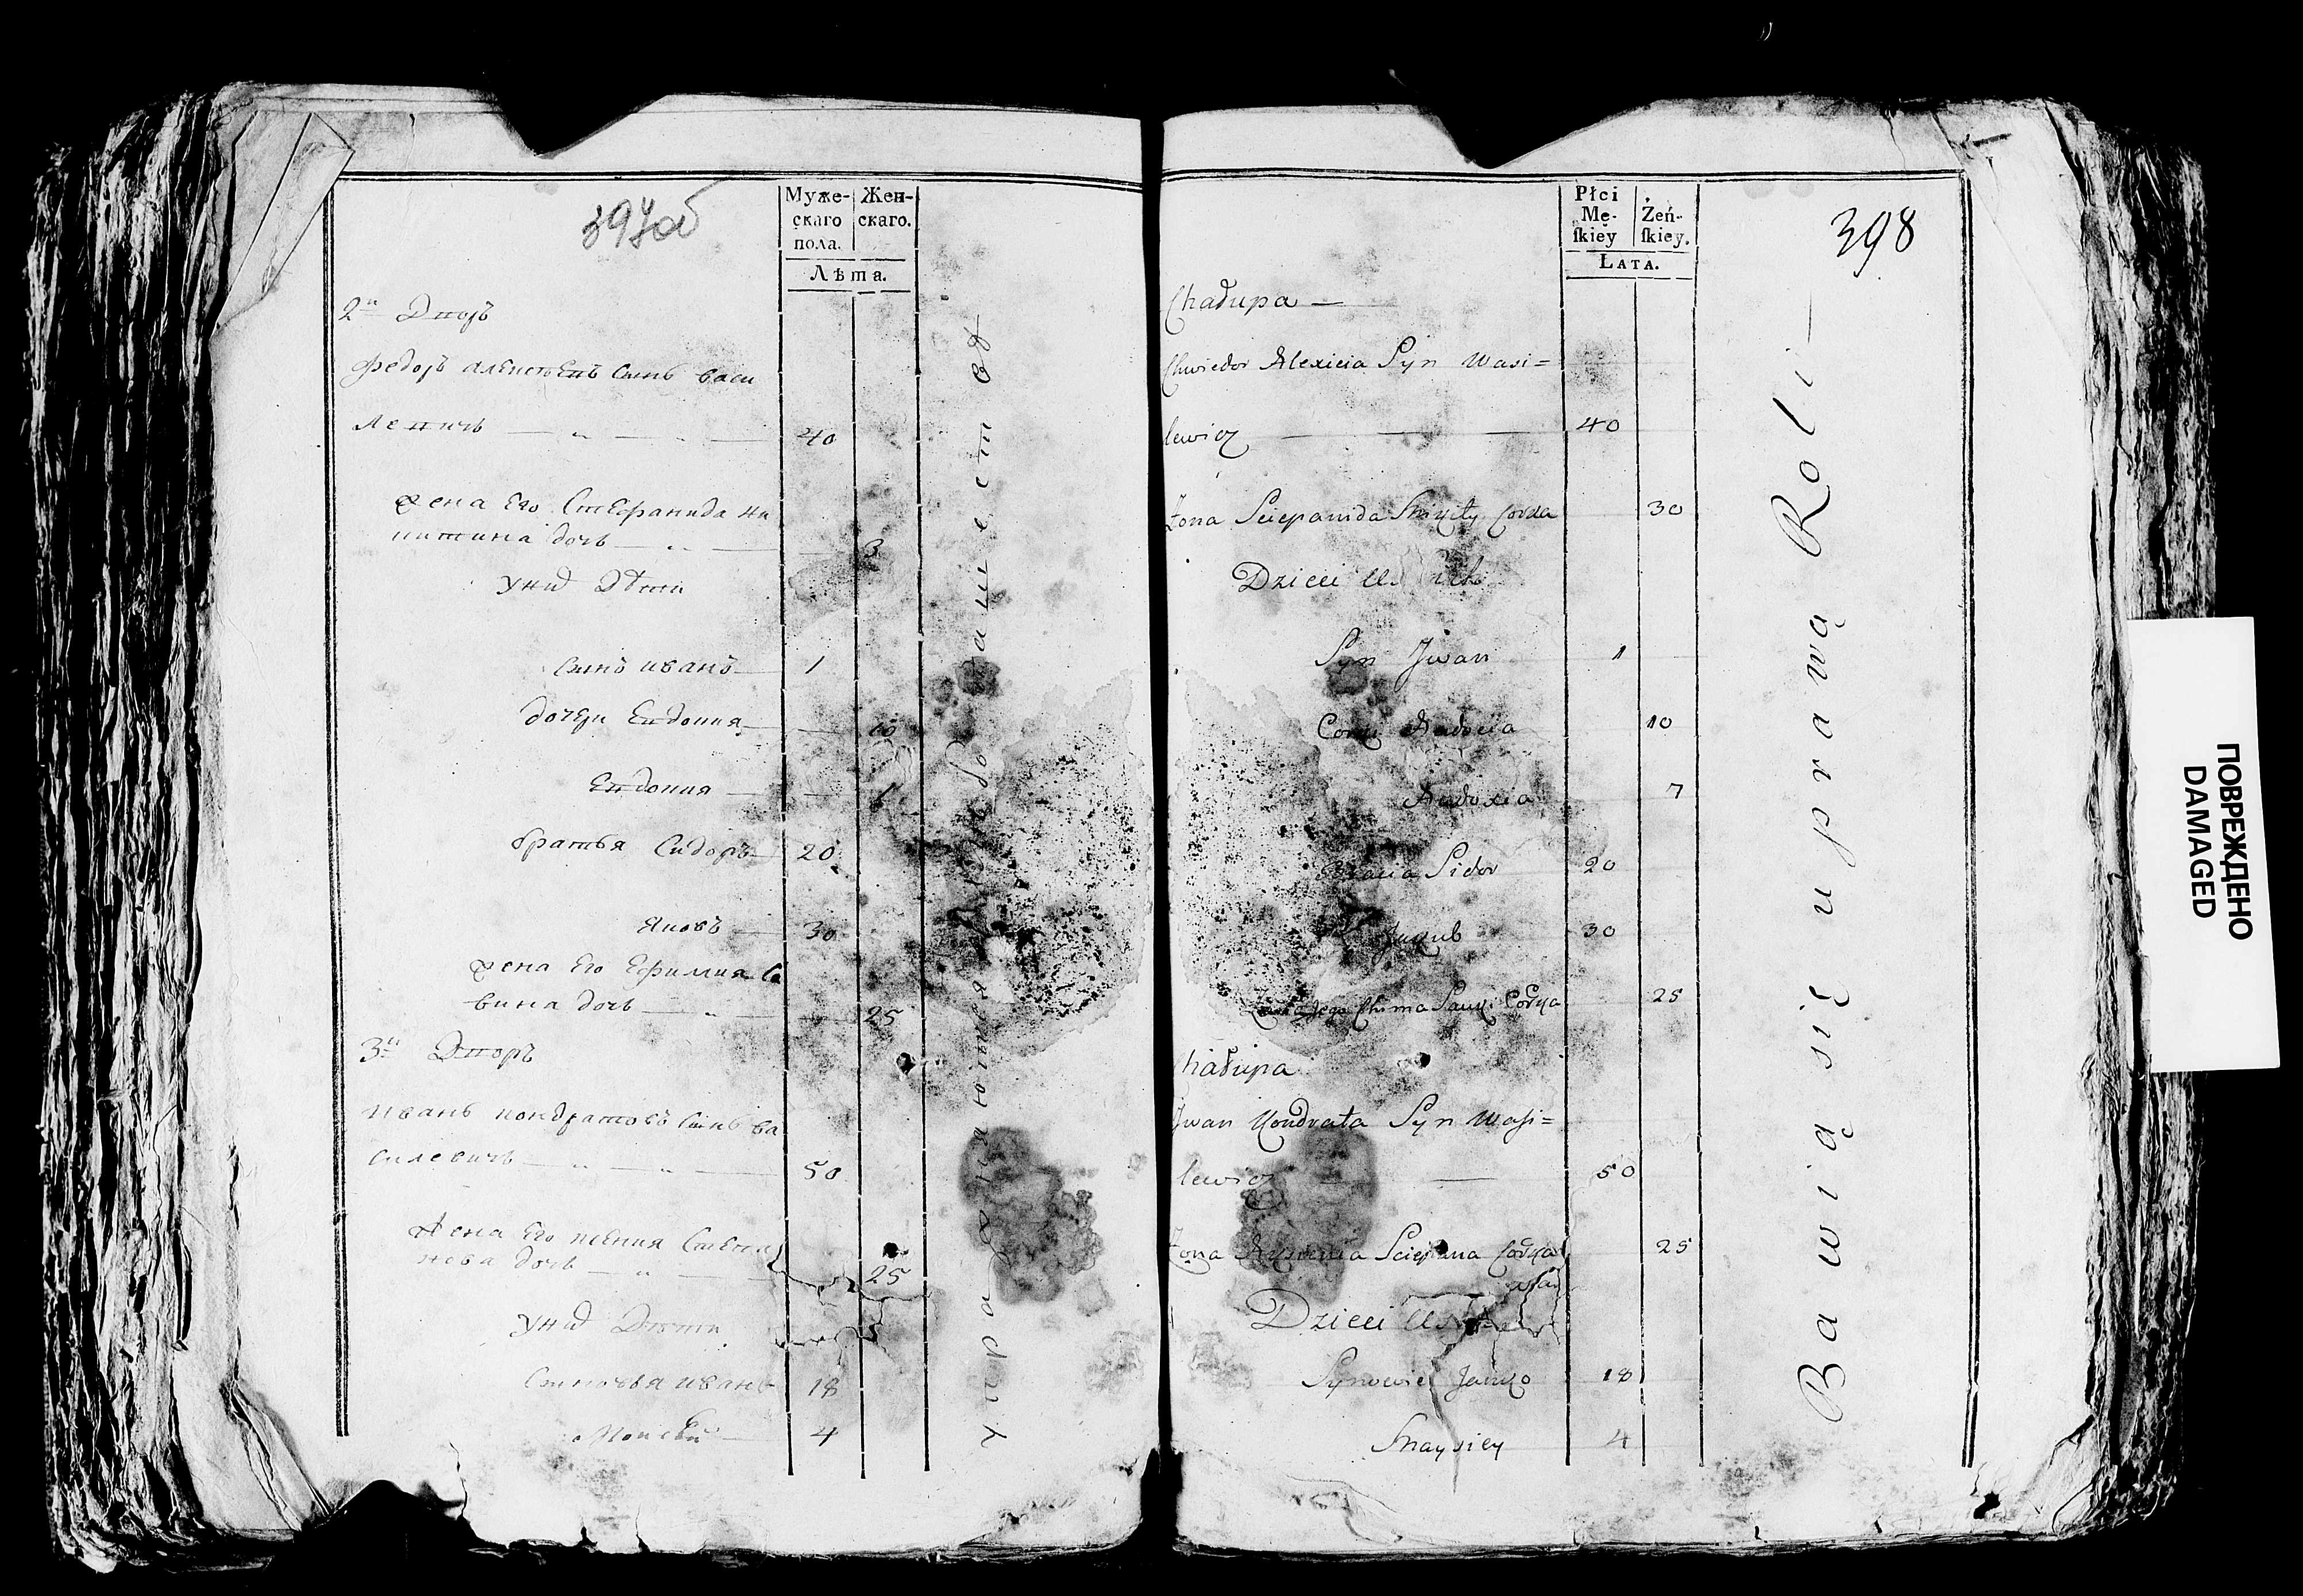 397об
Муже-
скаго
пола.
Жен-
скаго.
Лѣта.
2й Дворъ
Федоръ алексѣевъ сынъ васи
левичь 40
жена его Стефанида ни
китина дочь
у них дѣти
сынъ иванъ 1
дочери Евдокия 10
Евдокия
братья Сидоръ 20
Яковъ 30
жена его Ефимия Са
вина дочь 25
3й Дворъ
иванъ кондратовъ сынъ ва
силевичь 50
жена его ксения Степа
нова дочь 25
у них дѣти
сыновья иванъ 18
Моисей 4
упражняются хлѣбопашествомъ
398
Płci
Mę-
skiey
Żeń-
skiey.
Lata.
Chałupa —
Chwiedor Alexieia Syn Wasi=
lewicz 40
Żona Sciepanida Mikity Corka 30
Dzieci U nich
Syn Jwan 1
Corki Audocia 10
Audocia 7
Bracia Sidor 20
Jakub 30
Żona Jego Chima Sawy Corka 25
Chałupa
Jwan Kondrata Syn Wasi=
lewicz 50
Żona Sciepana Corka 25
Dzieci U
Synowie Janko 18
Maysiey 4
Bawią się uprawą Roli —
ПОВРЕЖДЕНО
DAMAGED